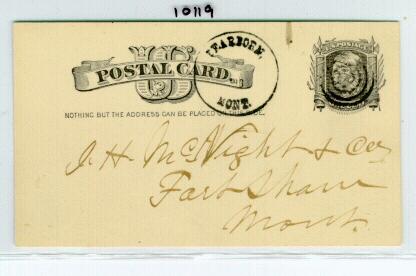 10119
U.S. POSTAGE
U S
POSTAL CARD.
DEARBORN,
MONT.
NOTHING BUT THE ADDRESS CAN BE PLACED ON THIS SIDE.
J. H. McKnight & Co
Fort Shaw
Mont.